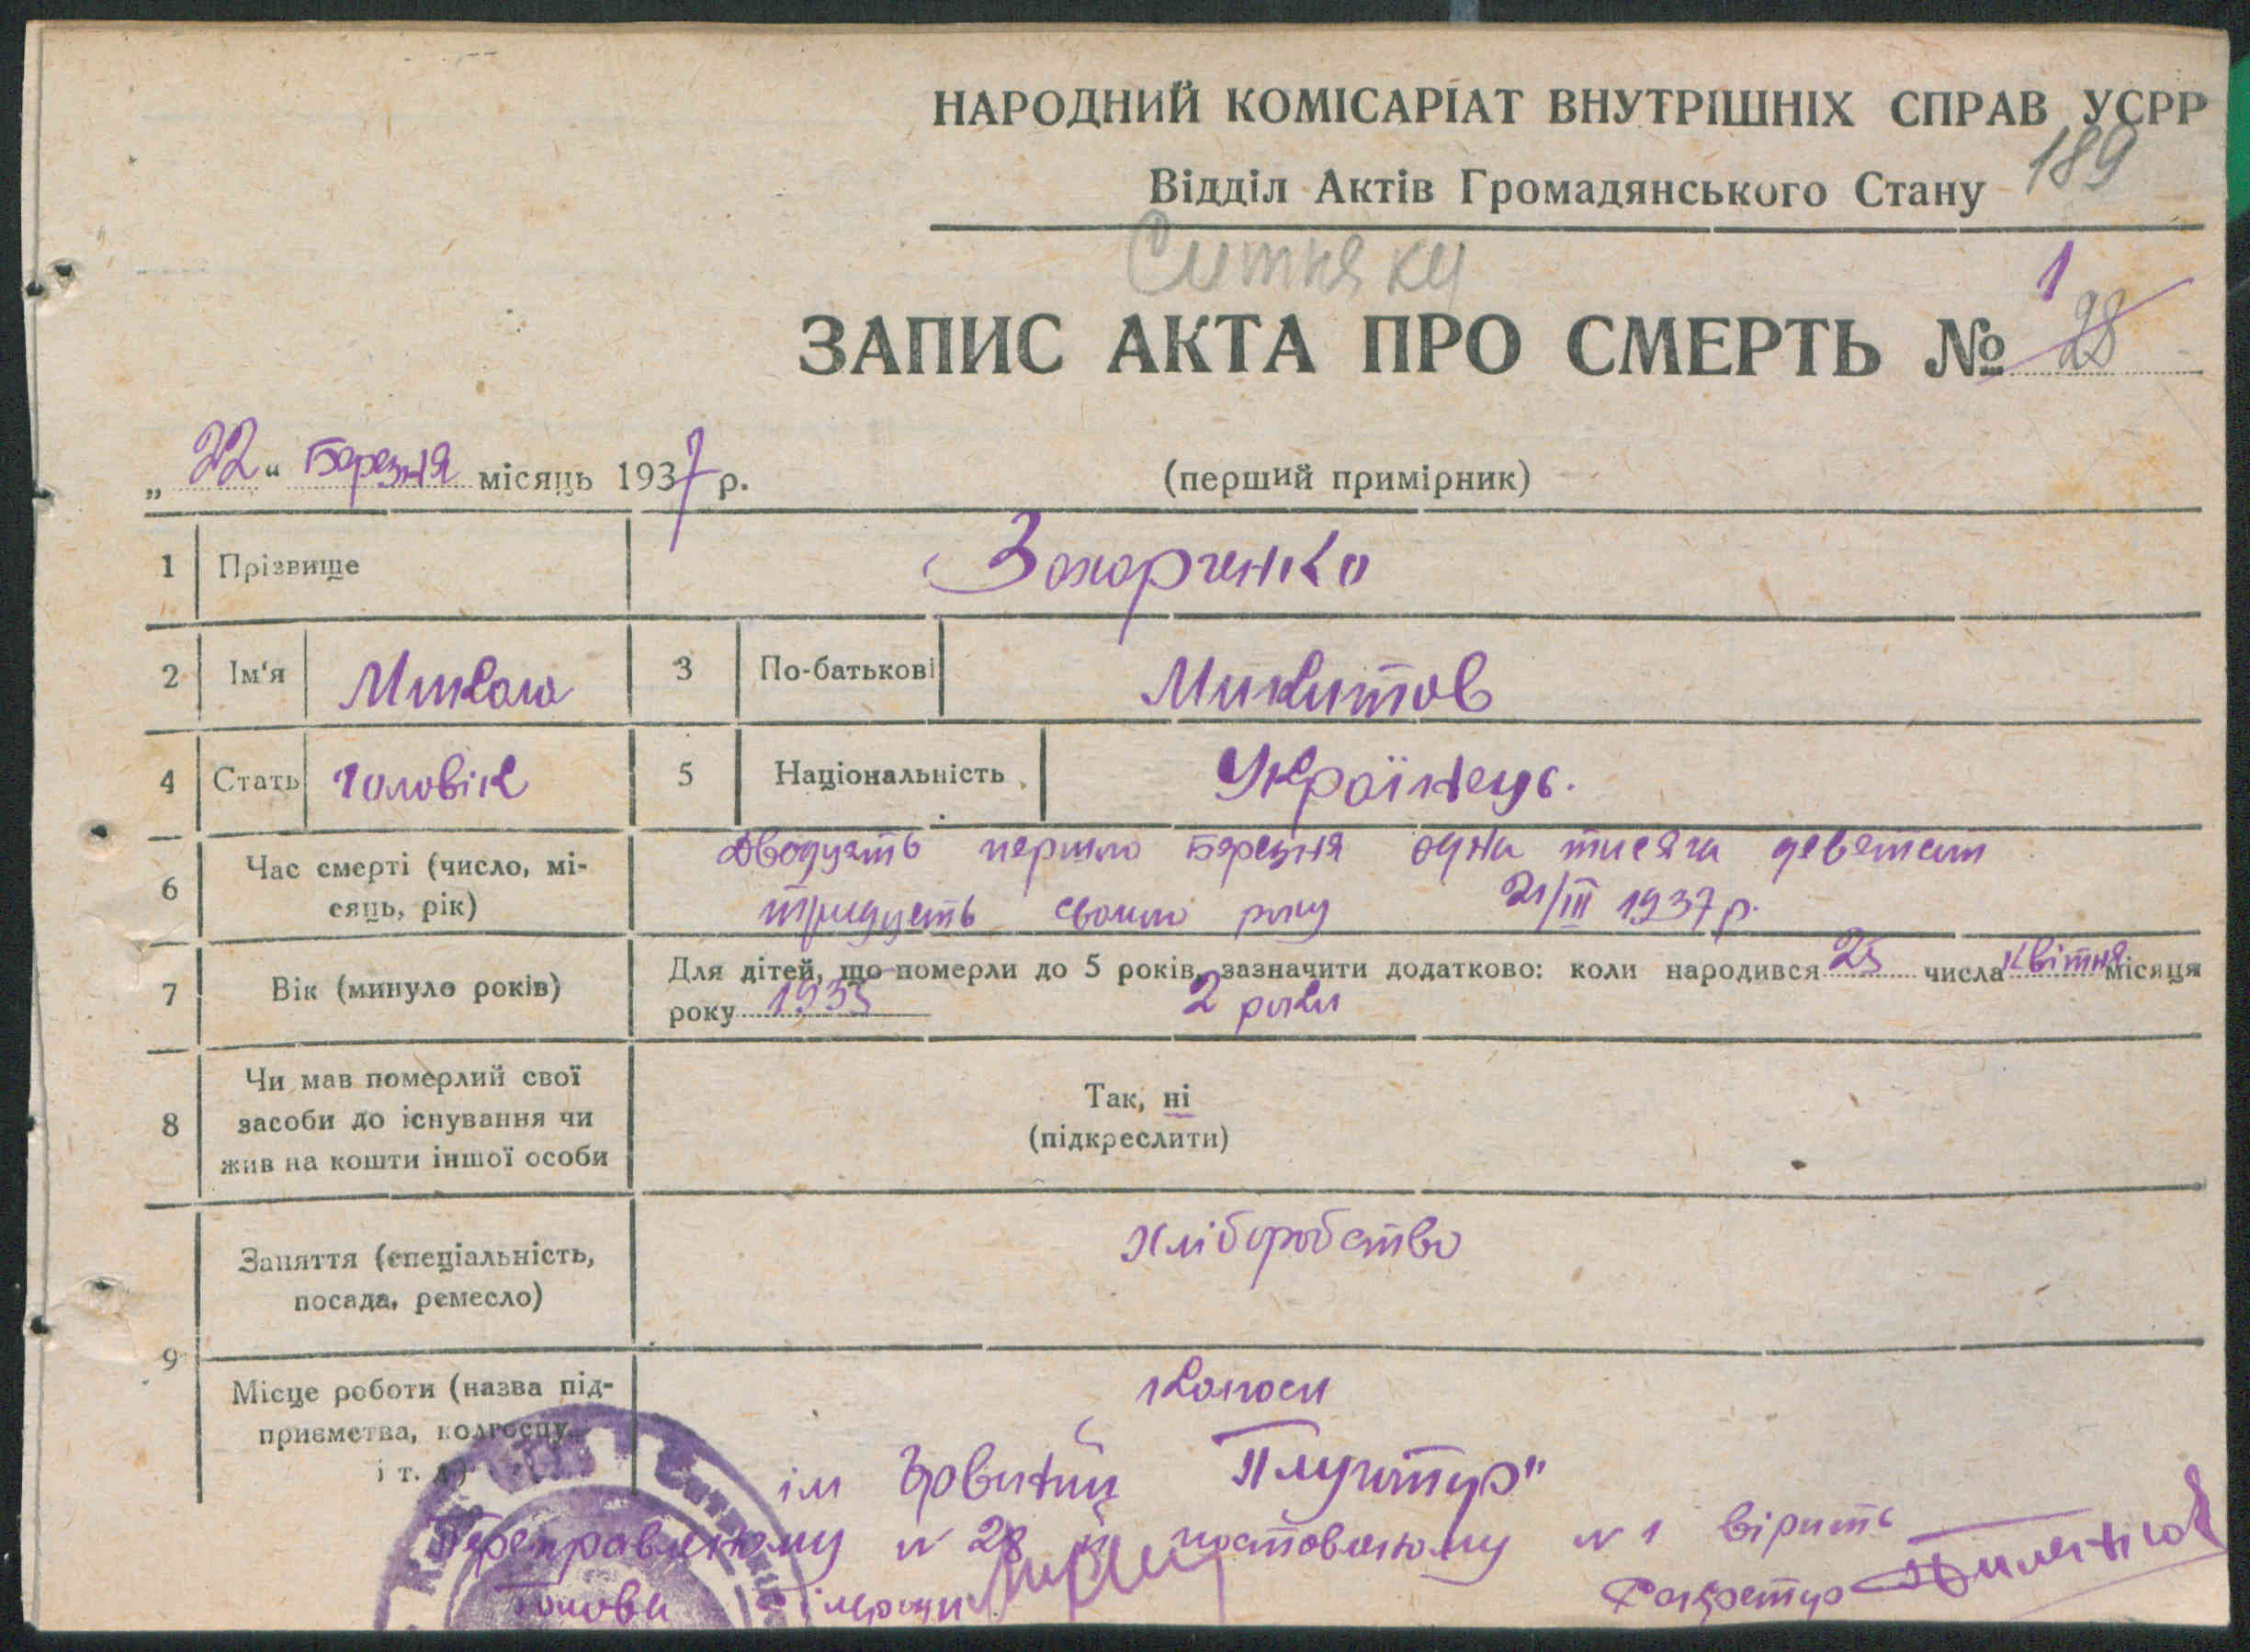 НАРОДНИЙ КОМІСАРІАТ ВНУТРІШНІХ СПРАВ УСРР
189
Відділ Актів Громадянського Стану
Ситняки
ЗАПИС АКТА ПРО СМЕРТЬ № 28
1
„ 22 " Березня місяць 1937 р.
(перший примірник)
1 Прізвище Захарченко
2 Ім'я Микола 3 По-батькові Микитов
4 Стать Чоловік 5 Національність Українець.
6 Час смерті (число, мі-
сяць, рік)
Двадцять першого Березня одна тисяча девятсот
тридцять сьомого року 21/III 1937 р.
7 Вік (минуло років)
Для дітей, що померли до 5 років, зазначити додатково: коли народився 25 числа квітня місяця
року 1935 2 роки
8 Чи мав померлий свої
засоби до існування чи
жив на кошти іншої особи
Так, ні
(підкреслити)
9 Заняття (спеціальність,
посада, ремесло)
Хліборобство
Місце роботи (назва під-
приємства, колгоспу
і т. д.)
ім Плугатар"
Переправленому № 28 й поставленому № 1 вірить
Голова
Секретар